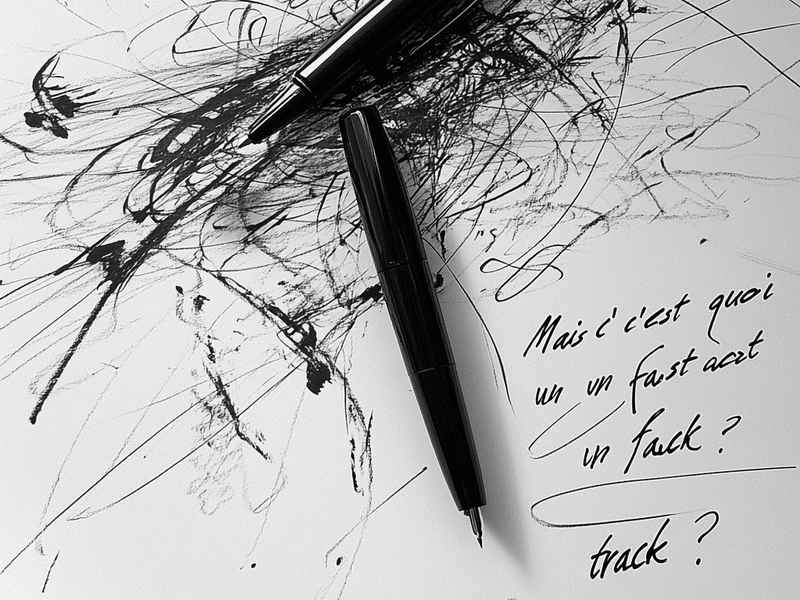 Mais c' c'est quoi
un un fast act
un fack ?
track ?